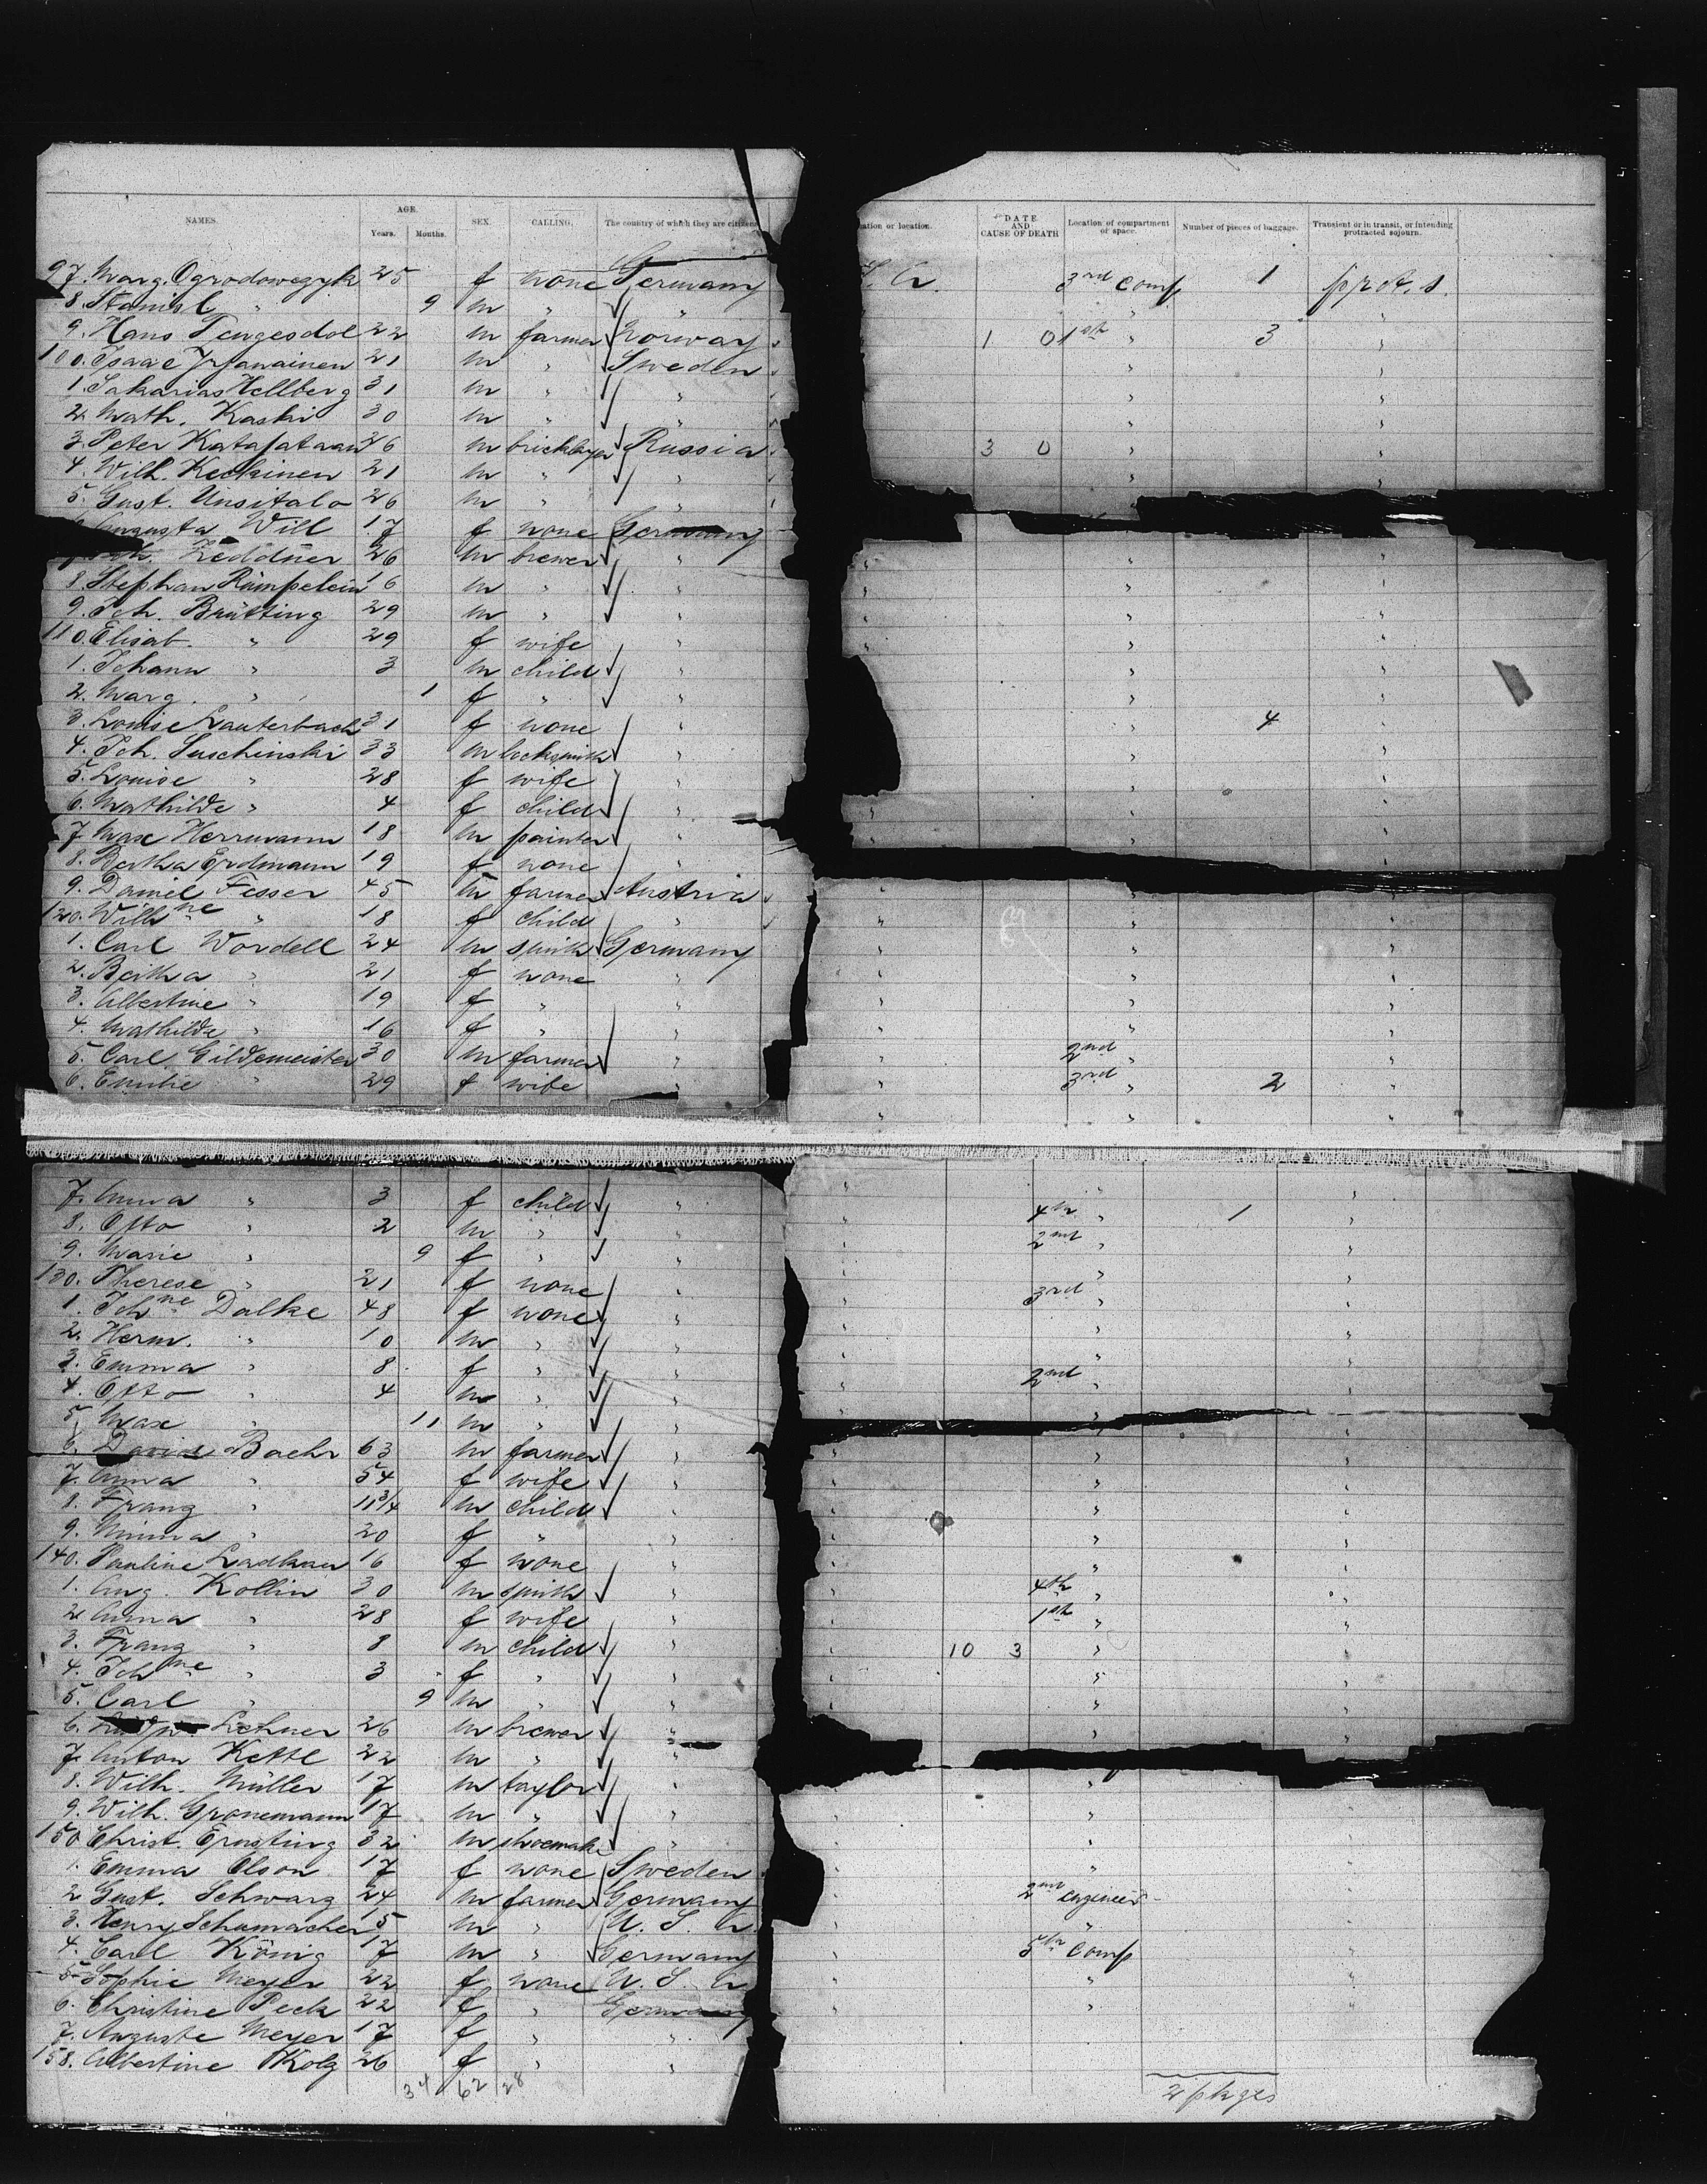 NAMES. AGE. Years. Months. SEX. CALLING. The country of which they are citizens
ation or location. DATE AND CAUSE OF DEATH Location of compartment or space. Number of pieces of baggage. Transient or in transit, or intending protracted sojourn.
97. Marg. Ogrodowczyk 25 f none Germany S. A. 3rd comp 1 prot. s.
8. Stanisl. " 9 m " "
9. Hans Tengesdol 22 m farmer Norway 1 0 1st " 3 "
100. Isaac 21 m " Sweden " "
1. Sakarias Hellberg 31 m " " " "
2. Math. Kaski 30 m " " " "
3. Peter Katajataan 26 m bricklayer Russia 3 0 " "
4. Wilh. Keckinen 21 m " "
5. Gust. Unsitalo 26 m " "
6. Augusta Will 17 f none Germany
Zeddner 26 m brewer "
8. Stephan Rümpelein 16 m " "
9. Joh. Brütting 29 m " "
110. Elisab. " 29 f wife "
1. Johann " 3 m child "
2. Marg. " 1 f " "
3. Louise Lauterbach 31 f none " 4
4. Joh. Suschinski 33 m locksmith "
5. Louise " 28 f wife "
6. Mathilde " 4 f child "
7. Max Herrmann 18 m painter "
8. Bertha Erdmann 19 f none "
9. Daniel Fesser 45 m farmer Austria
120. Wilhne " 18 f child "
1. Carl Wordell 24 m smith Germany
2. Bertha " 21 f none "
3. Albertine " 19 f " "
4. Mathilde " 16 f " "
5. Carl Gildemeister 30 m farmer " 2nd "
6. Emilie " 29 f wife " 3rd " 2
7. Anna " 3 f child " 4th " 1 "
8. Otto " 2 m " " 2nd "
9. Marie " 9 f " "
130. Therese " 21 f none " 3rd "
1. Johne Dalke 48 f none "
2. Herm. " 10 m " "
3. Emma " 8 f " " 2nd "
4. Otto " 4 m " "
5. Max " 11 m " "
6. David Baehr 63 m farmer "
7. Anna " 54 f wife "
8. Franz " 11 3/4 m child "
9. Minna " 20 f " "
140. Pauline 16 f none "
1. Aug. Kollin 30 m smith " 4th "
2. Anna " 28 f wife " 1st "
3. Franz " 8 m child " 10 3 "
4. Johne " 3 f " "
5. Carl " 9 m " "
6. Lehner 26 m brewer "
7. Anton Kettl 22 m " "
8. Wilh. Müller 17 m taylor "
9. Wilh. Gronemann 17 m " "
150. Christ. Ernsting 32 m shoemaker "
1. Emma Olson 17 f none Sweden
2. Gust. Schwarz 24 m farmer Germany 2nd engineer
3. Henry Schumacher 15 m " U. S. A. "
4. Carl König 17 m " Germany 5th comp
5. Sophie Meyer 22 f none U. S. A "
6. Christine Peck 22 f " Germany "
7. Auguste Meyer 17 f " "
158. Albertine Kolz 26 f " "
34 62 28
2 pkges